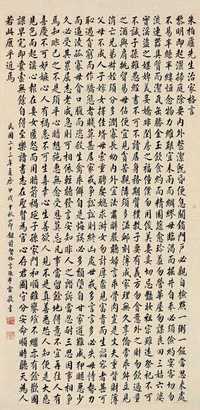 朱柏廬先生治家格言
黎明即起灑掃庭除要內外整潔既昏便息關鎖門戶必親自檢點一粥一飯當思來處
不易半絲半縷恒念物力維艱宜未雨而綢繆毋臨渴而掘井自奉必須儉約宴客切
勿留連器具質而潔瓦缶勝金玉飲食約而精園蔬愈珍饈勿營華屋勿謀良田三姑六婆
實淫盜之媒婢美妾嬌非閨房之福僮僕勿用俊美妻妾切忌豔妝祖宗雖遠祭祀不可
不誠子孫雖愚經書不可不讀居身務期質樸教子要有義方勿貪意外之財勿飲過量
之酒與肩挑貿易毋佔便宜見貧苦親鄰須加溫恤刻薄成家理無久享倫常乖舛立見
消亡兄弟叔姪須分多潤寡長幼內外宜法肅辭嚴聽婦言乖骨肉豈是丈夫重資財薄
父母不成人子嫁女擇佳婿毋索重聘娶媳求淑女勿計厚奩見富貴而生諂容者最可
恥遇貧窮而作驕態者賤莫甚居家戒爭訟訟則終凶處世戒多言言多必失毋恃勢力
而凌逼孤寡毋貪口腹而恣殺牲禽乖僻自是悔誤必多頹惰自甘家道難成狎暱惡少
久必受其累屈志老成急則可相依輕聽發言安知非人之譖愬當忍耐三思因事相爭
焉知非我之不是須平心暗想施惠無念受恩莫忘凡事當留餘地得意不宜再往人有
喜慶不可生妒忌心人有禍患不可生喜幸心善欲人見不是真善惡恐人知便是大惡
見色而起淫心報在妻女匿怨而用暗箭禍延子孫家門和順雖饔飧不繼亦有餘歡國
課早完即囊橐無餘自得至樂讀書志在聖賢為官心存君國守分安命順時聽天為人
若此庶乎近焉
民國二十三年